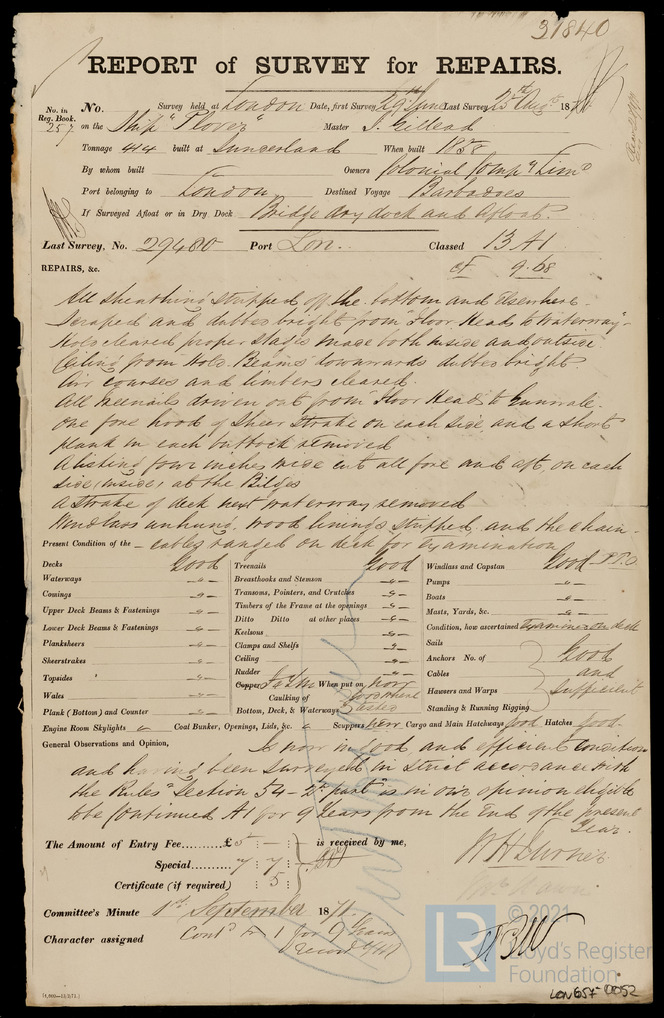 31840
REPORT of SURVEY for REPAIRS.
No. in Reg. Book. 257
No. Survey held at London Date, first Survey 29th June Last Survey 25th Augst 1871
on the Ship "Plover" Master J. Gillead
Tonnage 414 built at Sunderland When built 1858
By whom built Owners Colonial Comp'y Lim'd
Port belonging to London Destined Voyage Barbadoes
If Surveyed Afloat or in Dry Dock Bridge dry dock and Afloat.
Last Survey, No. 29480 Port Lon. Classed 13 A1
REPAIRS, &c. 9.68
All sheathing stripped off the bottom and elsewhere
Scraped and dubbed bright from Floor Heads to Waterways
Hold cleared proper stages made both inside and outside
Ceiling from Hold Beams downwards dubbed bright
Air courses and limbers cleared.
All treenails driven out from Floor Heads to Gunwale.
One fore hood of Sheer Strake on each side and a short
plank in each buttock removed
A listing four inches wide cut all fore and aft, on each
side, inside, at the Bilges
A strake of deck next waterway removed
Windlass unhung, wood linings stripped, and the chain
Present Condition of the – cables ranged on deck for Examination
P.T.O.
Decks Good
Waterways -"-
Comings -"-
Upper Deck Beams & Fastenings -"-
Lower Deck Beams & Fastenings -"-
Planksheers -"-
Sheerstrakes -"-
Topsides -"-
Wales -"-
Plank (Bottom) and Counter -"-
Treenails Good
Breasthooks and Stemson -"-
Transoms, Pointers, and Crutches -"-
Timbers of the Frame at the openings -"-
Ditto Ditto at other places -"-
Keelsons -"-
Clamps and Shelfs -"-
Ceiling -"-
Rudder -"-
Copper When put on, now
Caulking of
Bottom, Deck, & Waterways
Windlass and Capstan Good
Pumps -"-
Boats -"-
Masts, Yards, &c. -"-
Condition, how ascertained Examined on deck
Sails
Anchors No. of
Cables
Hawsers and Warps
Standing & Running Rigging
Good and sufficient
Engine Room Skylights " Coal Bunker, Openings, Lids, &c. " Scuppers new Cargo and Main Hatchways good Hatches good.
General Observations and Opinion, Is now in good and efficient condition
and having been surveyed in strict accordance with
the Rules Section 54 – 2nd part is in our opinion eligible
to be Continued A1 for 9 Years from the End of the present
Year.
The Amount of Entry Fee......£5 : – : is received by me,
Special......... 7 : 7 :
Certificate (if required) : 5 :
W H Turner
Committee's Minute 1st September 1871.
Character assigned Contd A 1 for 9 Years
(1,000—13/2/71.)
LR © 2021
Lloyd's Register
Foundation
LON657-0052